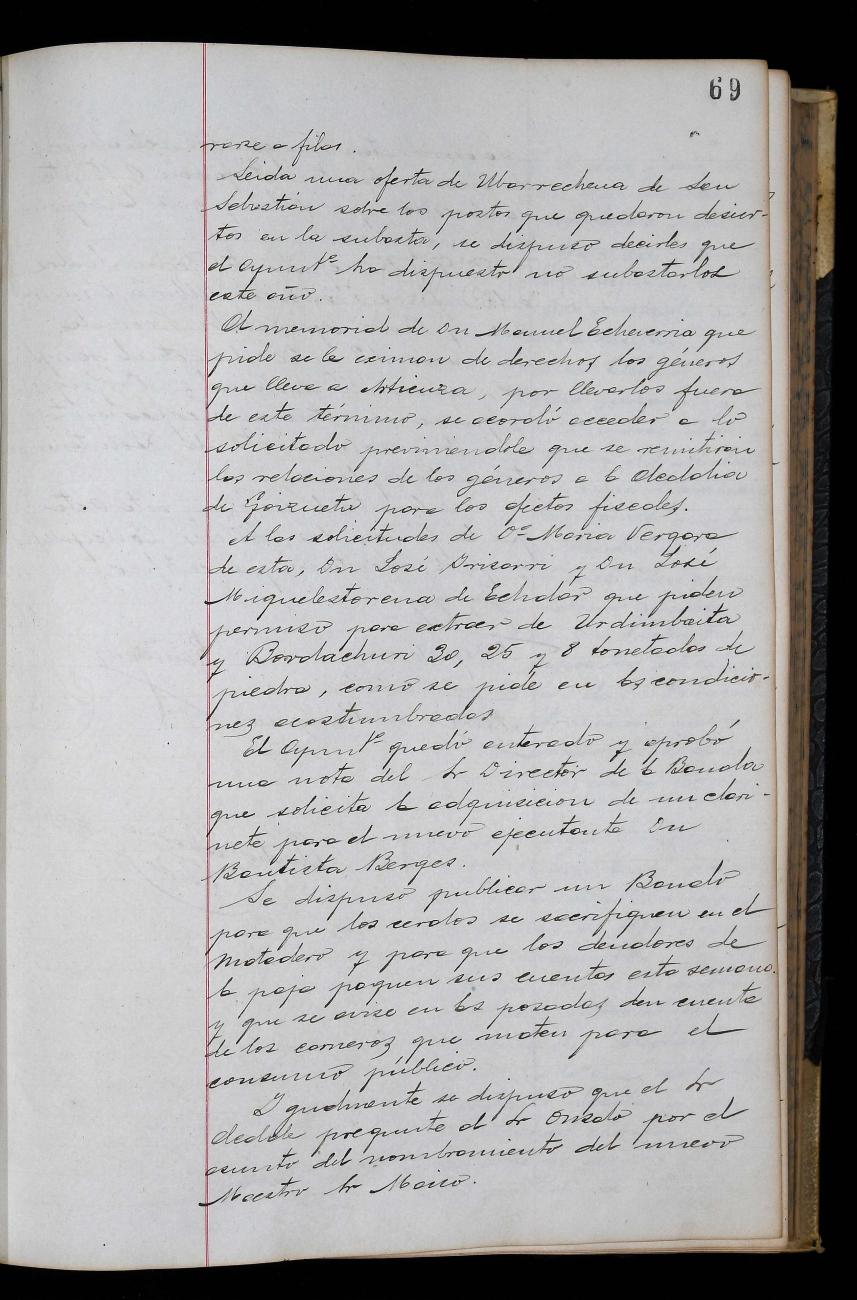 69
rarse a filas.
Leida una oferta de Ubarrechena de San
Sebastián sobre los postos que quedaron desier-
tos en la subasta, se dispuso decirles que
el Ayuntº ha dispuesto no subastarlos
este año.
Al memorial de Dn Manuel Echeverria que
pide se le eximan de derechos los géneros
que lleva a Articuza, por llevarlos fuera
de este término, se acordó acceder a lo
solicitado previniendole que se remitirán
las relaciones de los géneros a la Alcaldia
de Goizueta para los efectos fiscales.
A las solicitudes de Dª Maria Vergara
de esta, Dn José Irisarri y Dn José
Miquelestorena de Echalar que piden
permiso para extraer de Urdimbaita
y Bordachuri 30, 25 y 8 toneladas de
piedra, como se pide en las condicio-
nes acostumbradas
El Ayuntº quedó enterado y aprobó
una nota del Sr Director de la Banda
que solicita la adquisicion de un clari-
nete para el nuevo ejecutante Dn
Bautista Berges.
Se dispuso publicar un Bando
para que los cerdos se sacrifiquen en el
Matadero y para que los deudores de
la paja paguen sus cuentas esta semana
y que se avise en las posadas den cuenta
de los carneros que maten para el
consumo público.
Igualmente se dispuso que el Sr
Alcalde pregunte al Sr Onsalo por el
asunto del nombramiento del nuevo
Maestro Sr Maico.